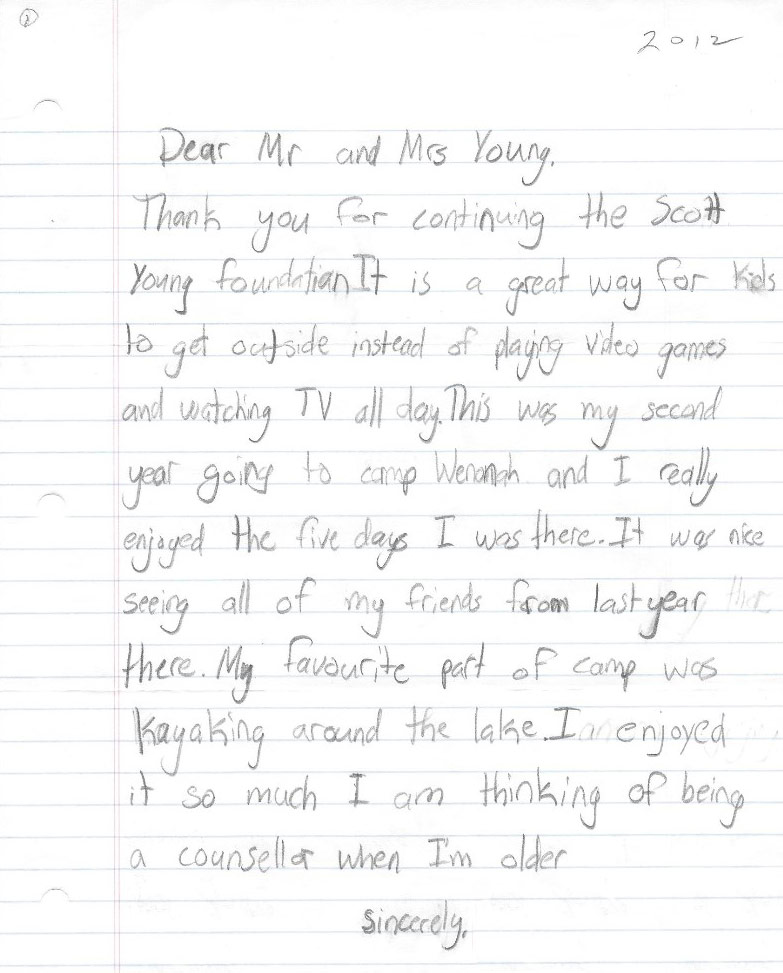 2012
Dear Mr and Mrs Young,
Thank you for continuing the Scott
Young foundation It is a great way for kids
to get outside instead of playing video games
and watching TV all day. This was my second
year going to camp Wenonah and I really
enjoyed the five days I was there. It was nice
seeing all of my friends from last year
there. My favourite part of camp was
kayaking around the lake. I enjoyed
it so much I am thinking of being
a counsellor when I'm older
sincerely,